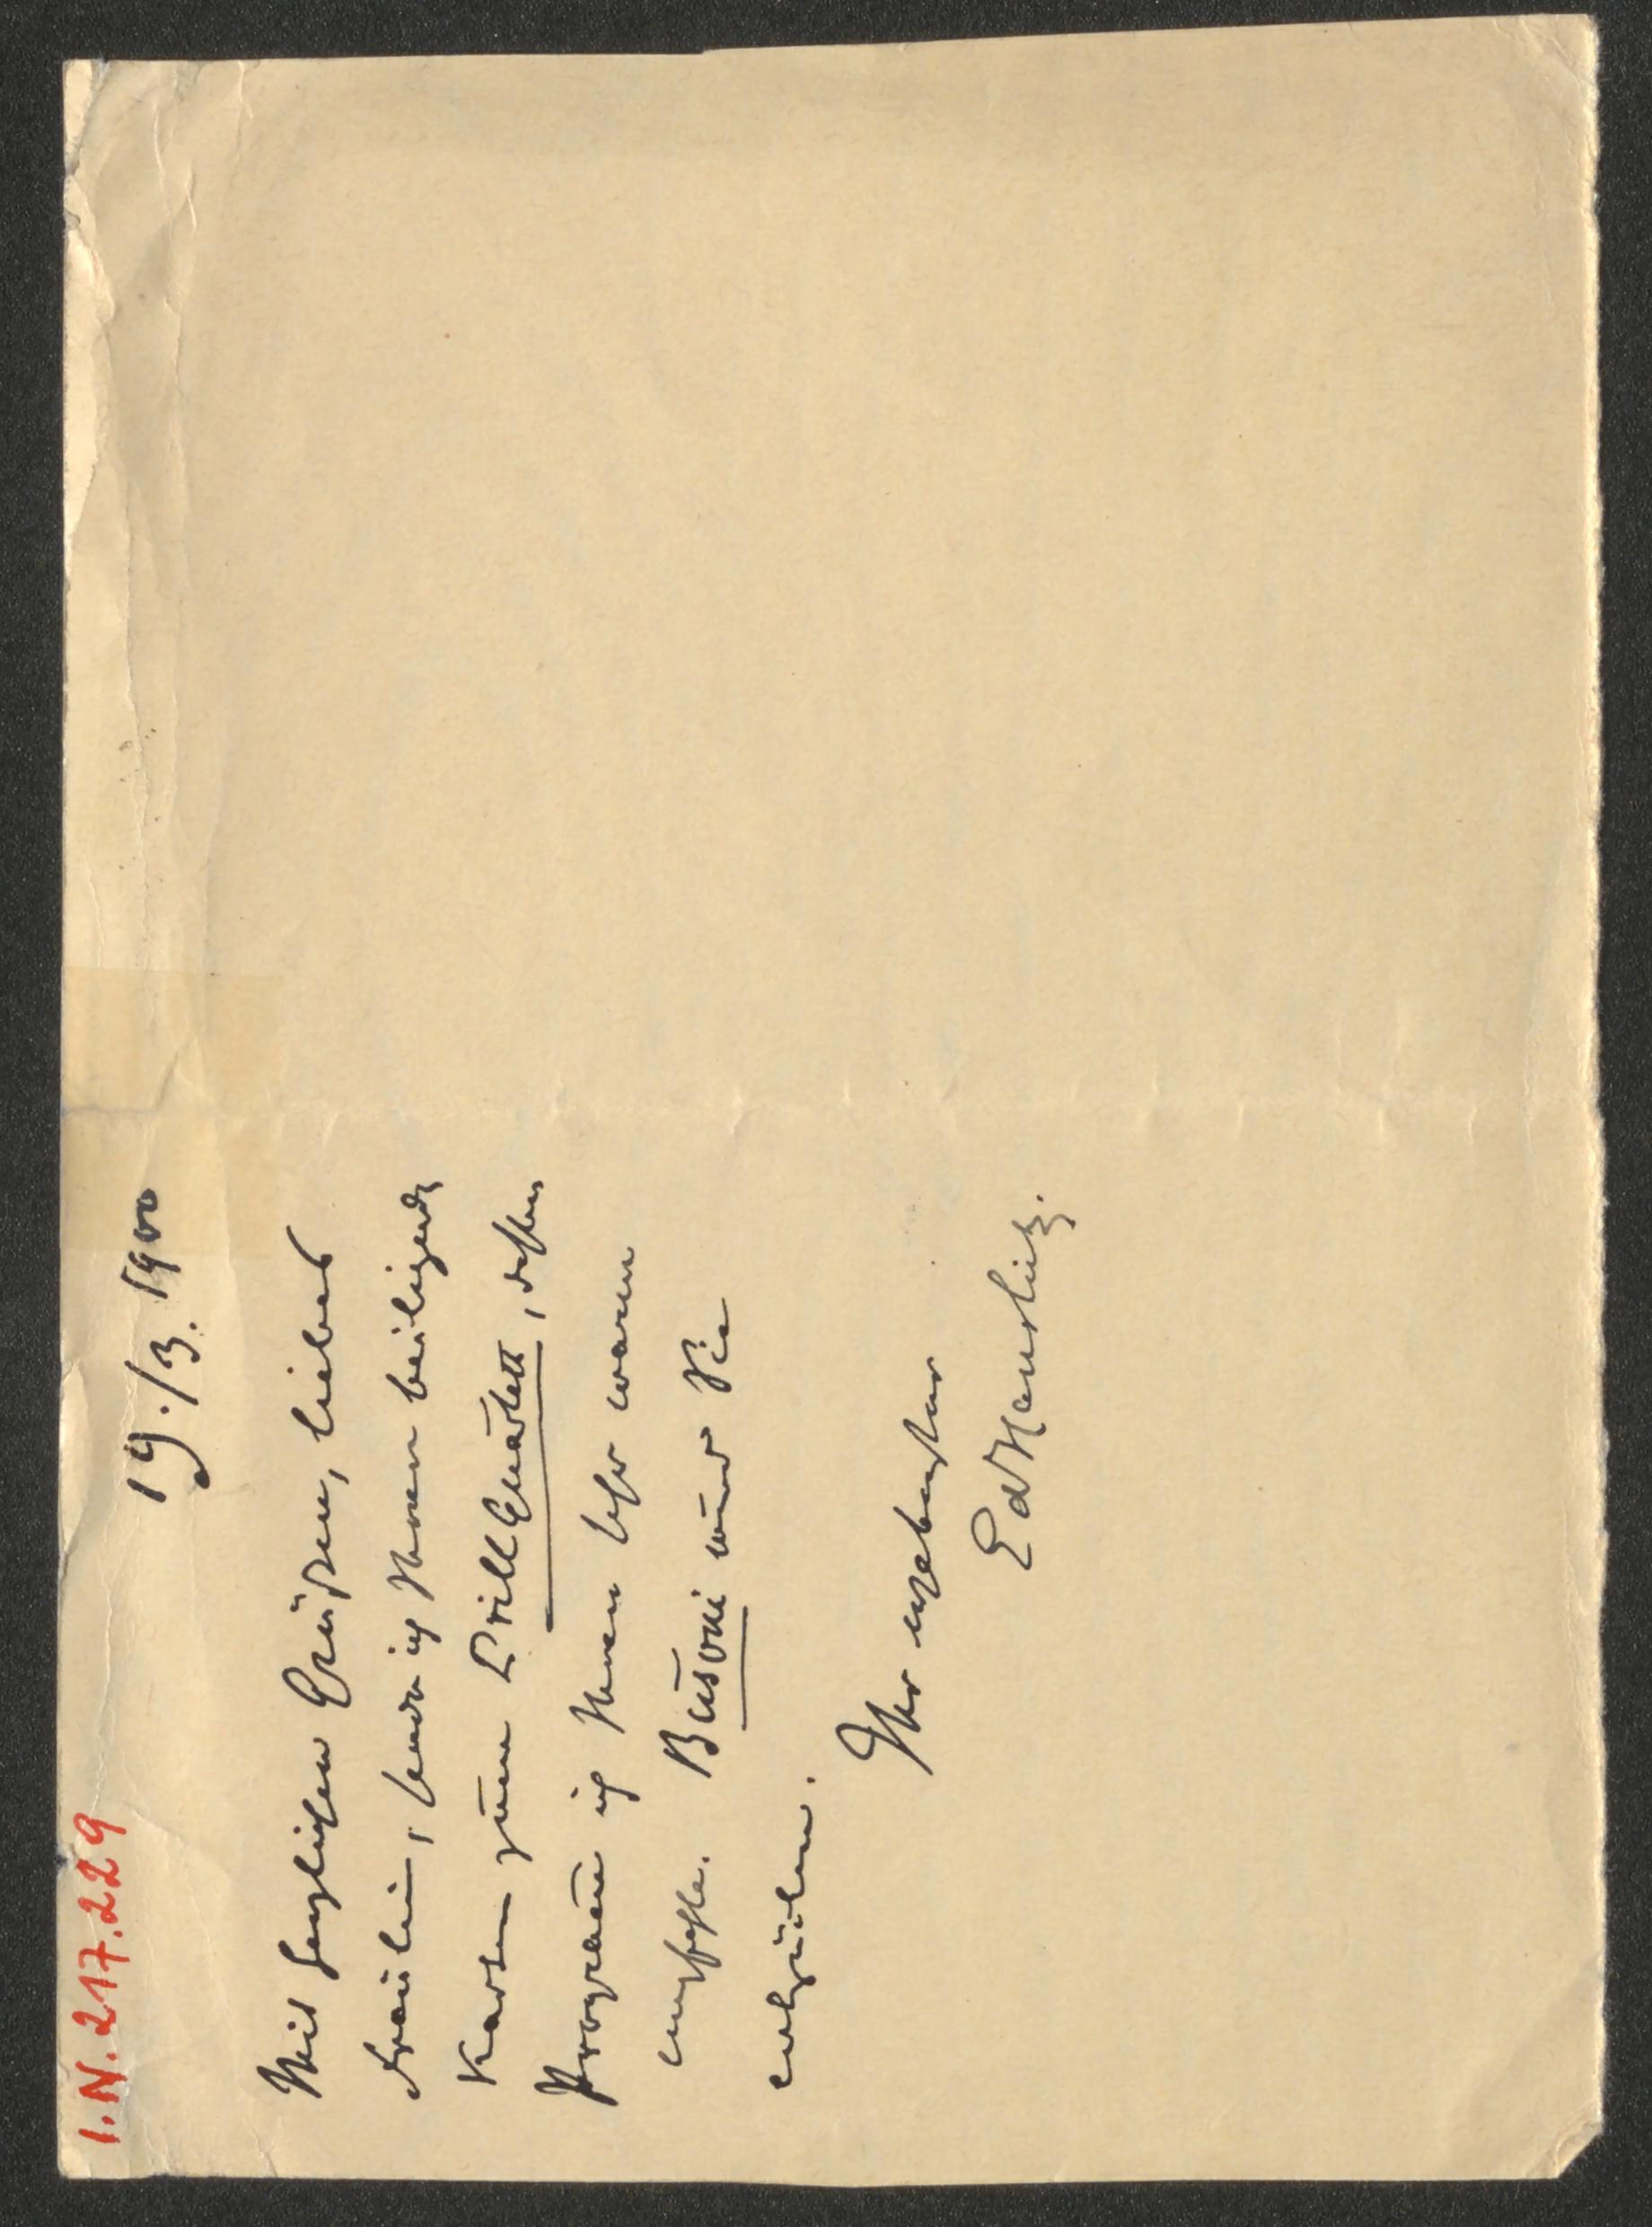 I.N. 217.229
19./3. 1900
Mit herzlichen Grüßen, liebes
Fräulein, sende ich Ihnen beiligende
Karten zum Prill Quartett, dessen
Program̄ ich Ihnen sehr warm
empfehle. Busoni wird Sie
entzücken.
Ihr ergebenster
EdHanslick.